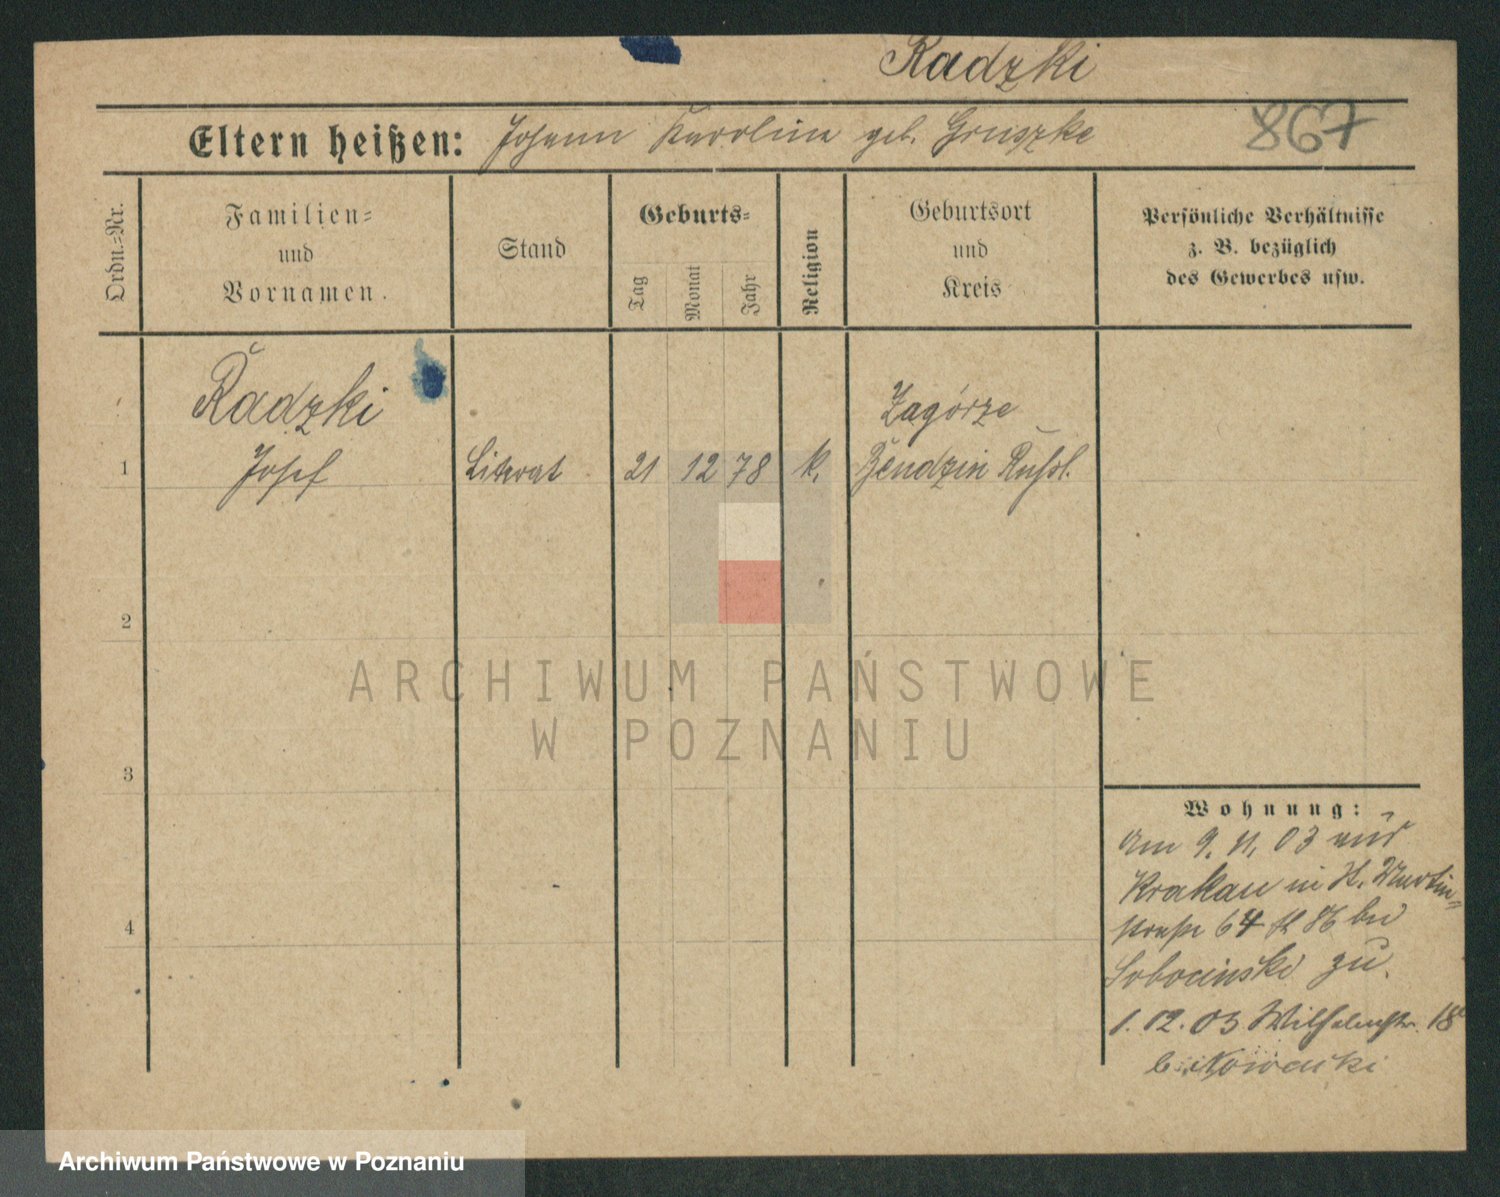 Radzki
Eltern heißen: Johann Karolina geb. Gruszke
867
Ordn.=Nr.
Familien=
und
Vornamen.
Stand
Geburts=
Tag
Monat
Jahr
Religion
Geburtsort
und
Kreis
Persönliche Verhältnisse
z. B. bezüglich
des Gewerbes usw.
Radzki
Zagórze
1 Josef Literat 21 12 78 k. Bendzin Rußl.
2
ARCHIWUM PAŃSTWOWE
W POZNANIU
3
Wohnung:
am 9. 11. 03 aus
Krakau in St. Martin=
straße 64 bei
Sobocinski zu.
1. 12. 03 Wilhelmstr. 18
4
b. Nowacki
Archiwum Państwowe w Poznaniu